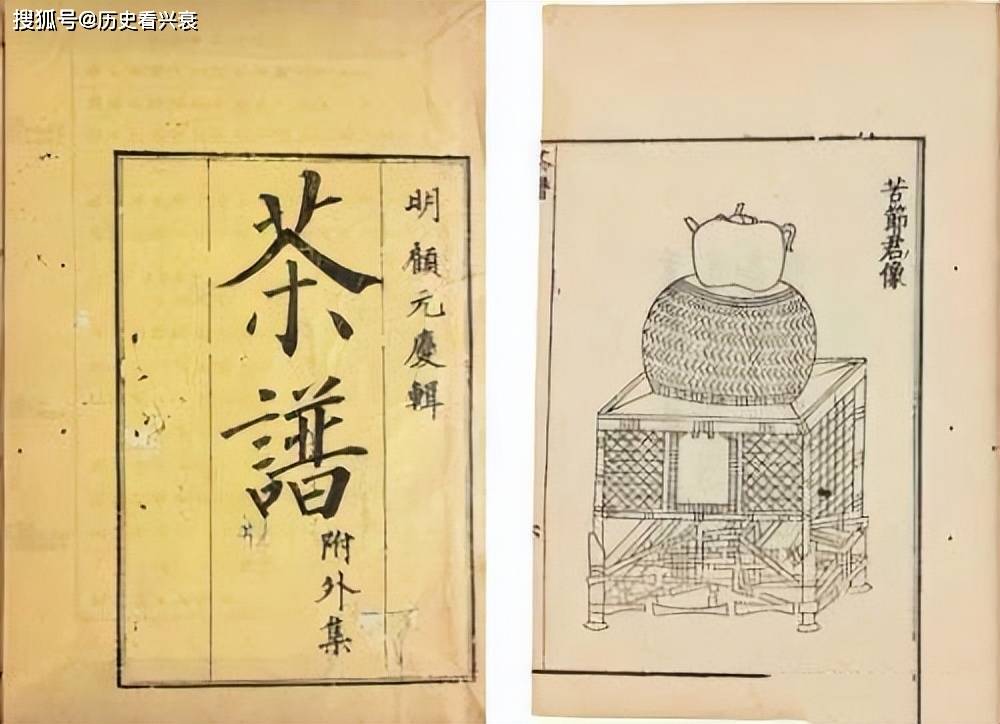 搜狐号@历史看兴衰
明 顧元慶輯
茶譜
附外集
苦節君像